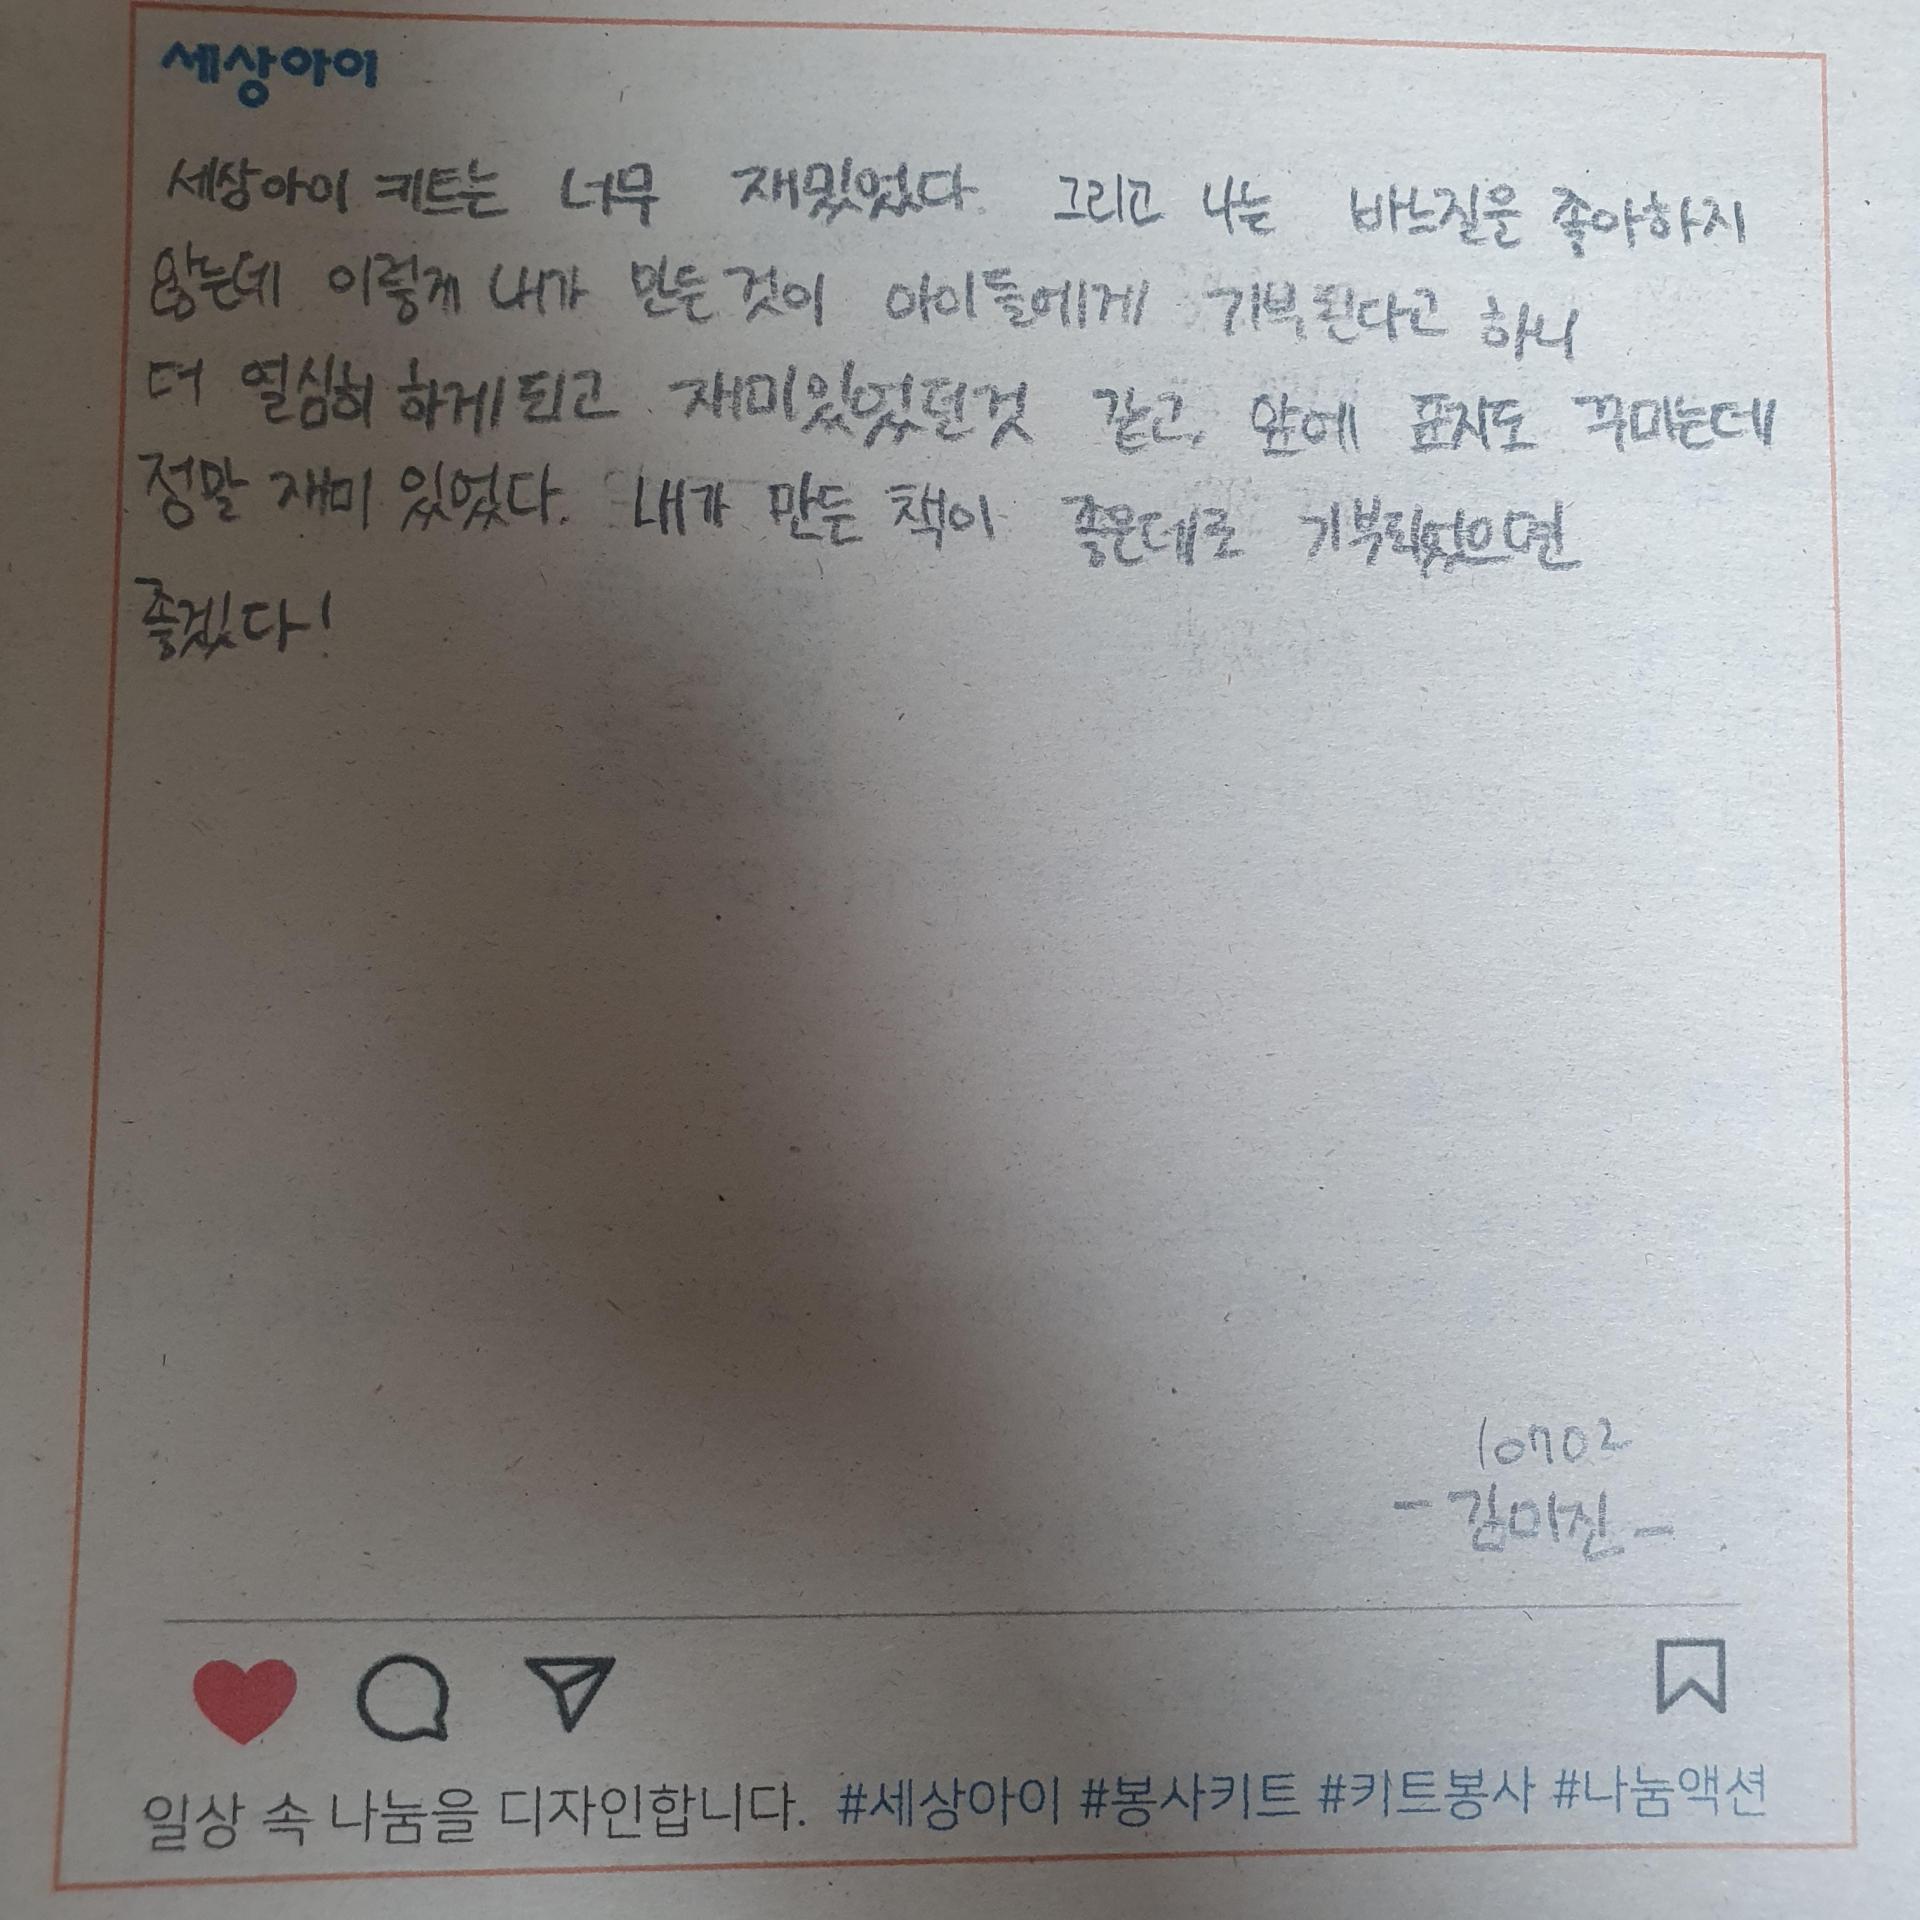 세상아이
세상아이 키트는 너무 재밌었다. 그리고 나는 바느질을 좋아하지
않는데 이렇게 내가 만든 것이 아이들에게 기부된다고 하니
더 열심히 하게되고 재미있었던것 같고, 앞에 표지도 꾸미는데
정말 재미 있었다. 내가 만든 책이 좋은데로 기부되었으면
좋겠다!
10702
- 김미진 -
일상 속 나눔을 디자인합니다. #세상아이 #봉사키트 #키트봉사 #나눔액션